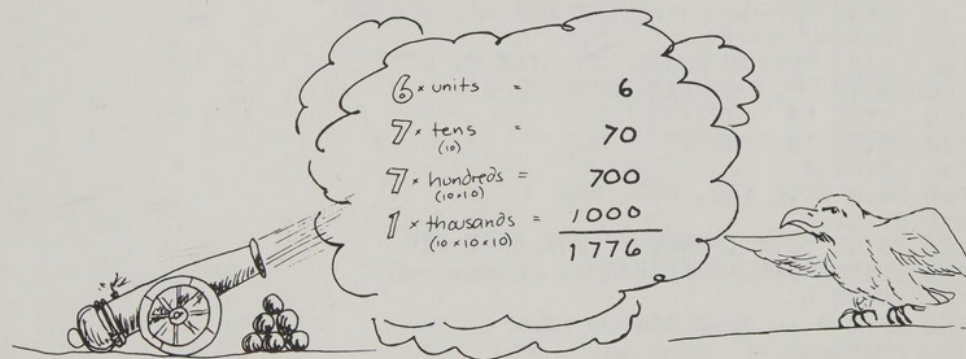 6 × units = 6
7 × tens = 70
(10)
7 × hundreds = 700
(10×10)
1 × thousands = 1000
(10 × 10 × 10)
1776